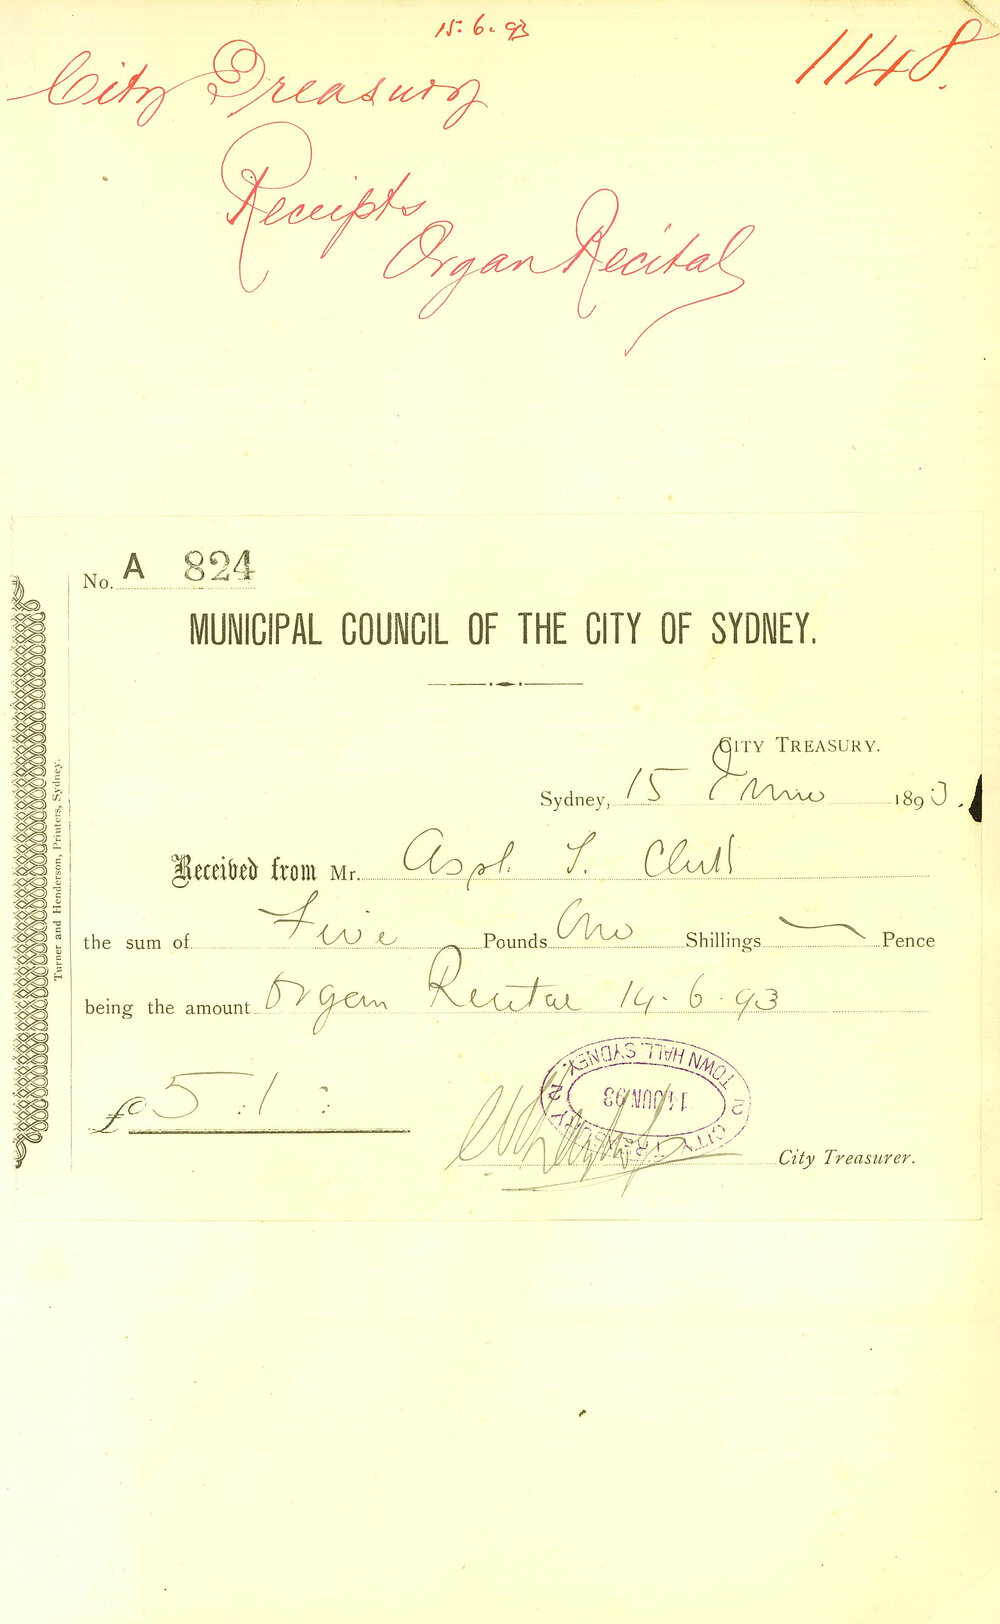 15.6.93
1148.
City Treasury
Receipts
Organ Recital
No. A 824
MUNICIPAL COUNCIL OF THE CITY OF SYDNEY.
CITY TREASURY.
Sydney, 15 June 1893.
Received from Mr. T. Clerk
the sum of Five Pounds One Shillings — Pence
being the amount Organ Recital 14.6.93
£5:1:
TOWN HALL SYDNEY.
2 2
14 JUN 93
CITY TREASURY
City Treasurer.
Turner and Henderson, Printers, Sydney.